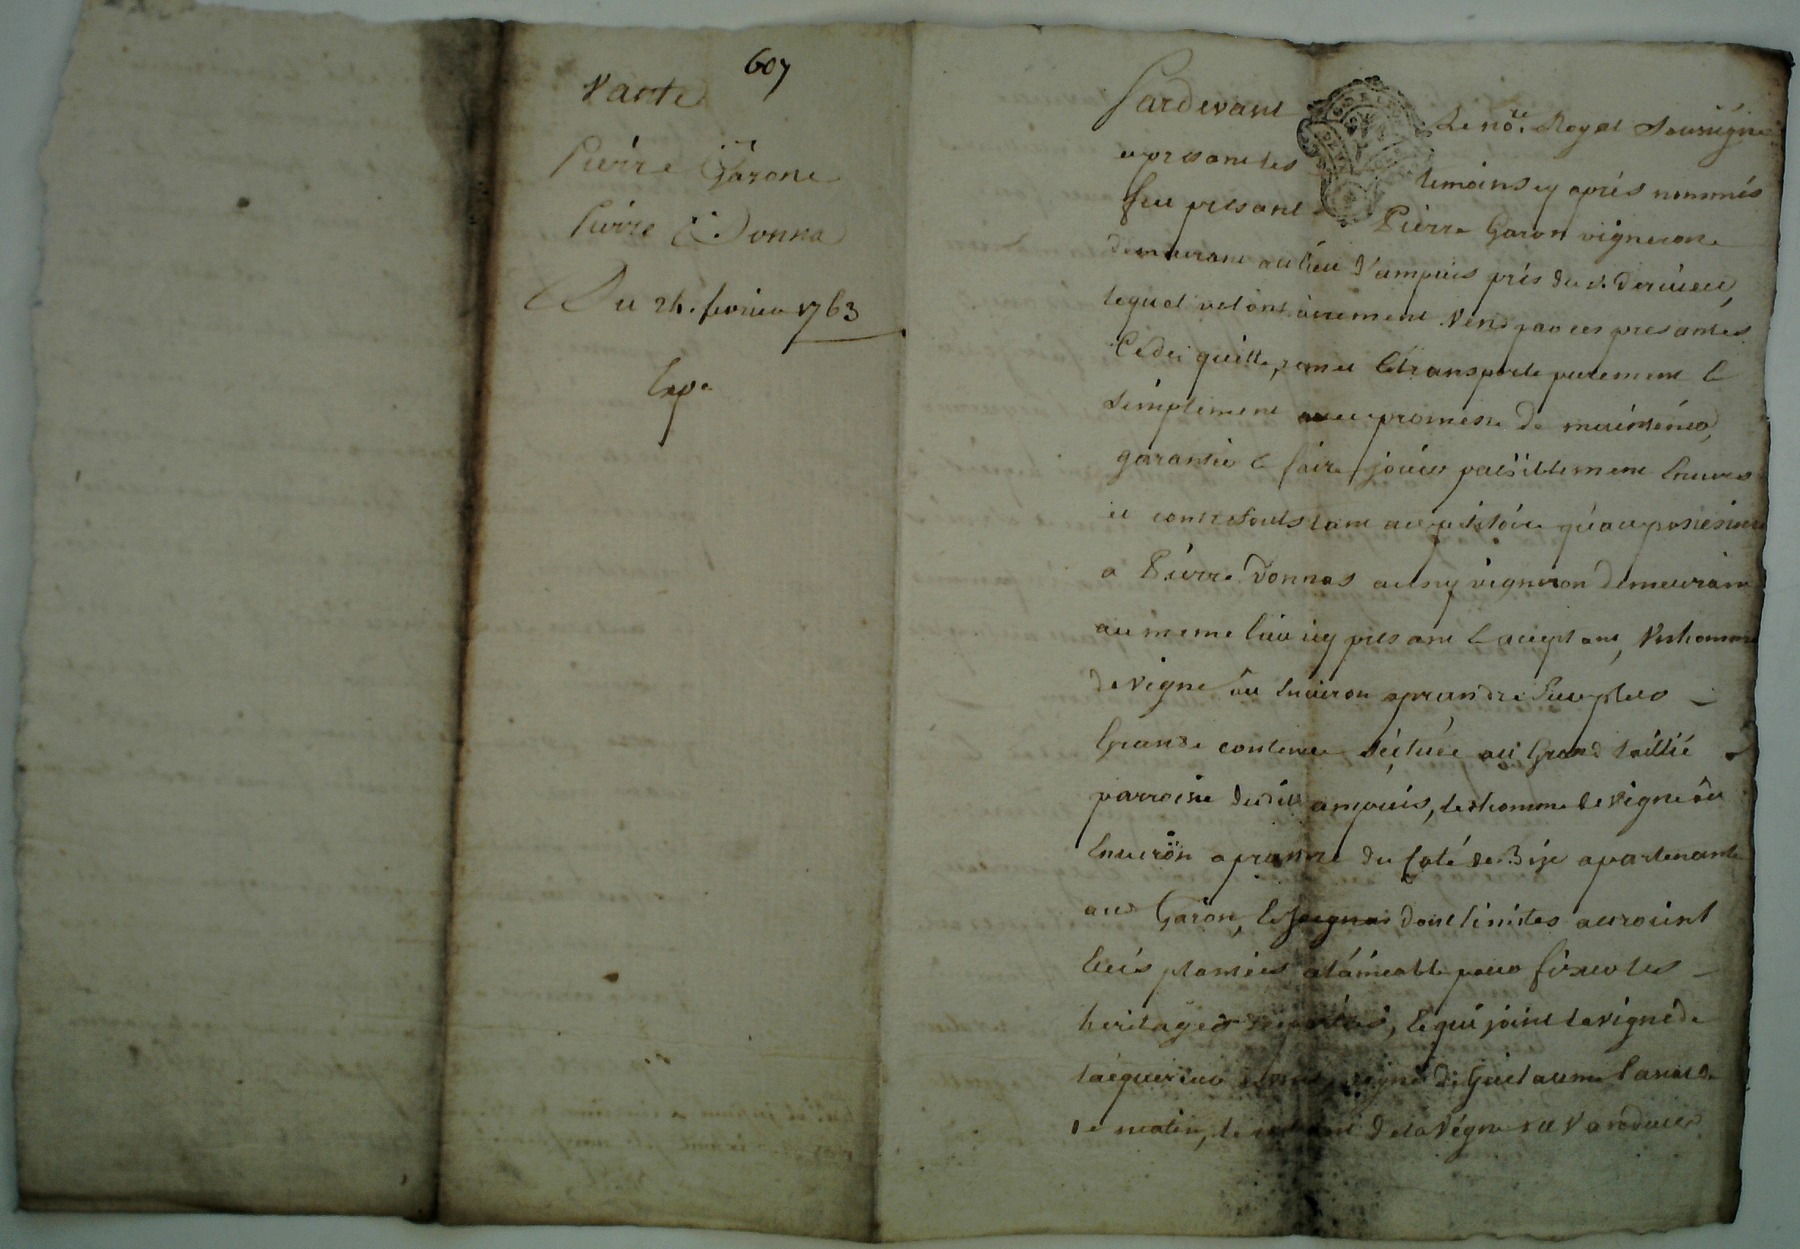 607
Vante
Pierre Garon
Pierre Donna
Du 24. fevrier 1763
Exp.
Pardevant Le no.re Royal Soussigné
et presant les temoins cy après nommés
feu present Pierre Garon vigneron
demeurant au lieu d'ampuis près du
lequel volontairement Vend par ces presantes
Cede, quitte, remet et transporte purement et
simplement avec promesse de maintenir,
garantir et faire jouir paisiblement Envers
et contre touts tant au petitoire qu'au possessoire
a Pierre Donnas aussy vigneron demeurant
au meme lieu icy presant et acceptant, homme
de vigne ôu Environ a prandre sur plus
Grande contenue scituée au Grand taillié
parroisse dudit ampuis, homme de vigne ôu
Environ a prandre du Coté de Bize apartenante
aud Garon, dont limites auroint
Etés plantées alámiable pour fixer les
heritages, Ce qui joint la vigne de
lacquereur vigne de Guilaume
de matin, le de la vigne du Vandeur